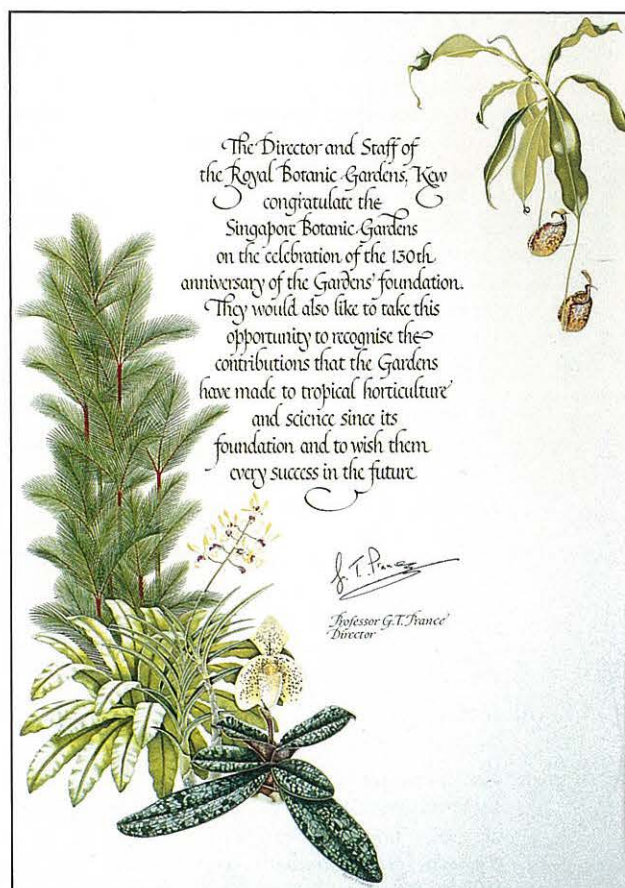 The Director and Staff of
the Royal Botanic Gardens, Kew
congratulate the
Singapore Botanic Gardens
on the celebration of the 130th
anniversary of the Gardens' foundation.
They would also like to take this
opportunity to recognise the
contributions that the Gardens
have made to tropical horticulture
and science since its
foundation and to wish them
every success in the future
G. T. Prance
Professor G.T. Prance
Director